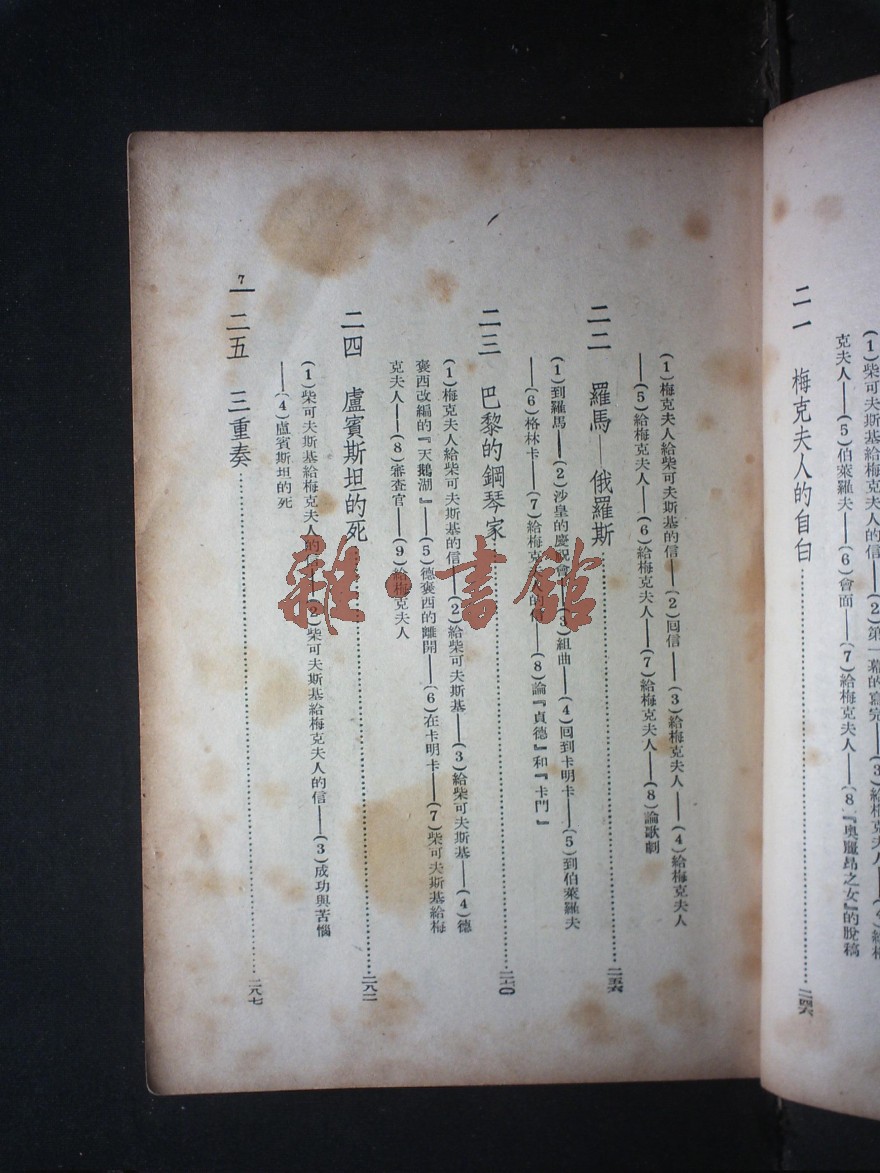 (1)柴可夫斯基給梅克夫人的信——(2)第一幕的寫完——(3)給梅克夫人——(4)給梅
克夫人——(5)伯萊羅夫——(6)會面——(7)給梅克夫人——(8『奧臘昂之女』的脫稿
二一 梅克夫人的自白……二四六
(1)梅克夫人給柴可夫斯基的信——(2)囘信——(3)給梅克夫人——(4)給梅克夫人
——(5)給梅克夫人——(6)給梅克夫人——(7)給梅克夫人——(8)論歌劇
二二 羅馬——俄羅斯……二五六
(1)到羅馬——(2)沙皇的慶祝會——(3)組曲——(4)囘到卡明卡——(5)到伯萊羅夫
——(6)格林卡——(7)給梅克夫人的信——(8)論『貞德』和『卡門』
二三 巴黎的鋼琴家……二七〇
(1)梅克夫人給柴可夫斯基的信——(2)給柴可夫斯基——(3)給柴可夫斯基——(4)德
褒西改編的『天鵝湖』——(5)德褒西的離開——(6)在卡明卡——(7)柴可夫斯基給梅
克夫人——(8)審查官——(9)給梅克夫人
二四 盧賓斯坦的死……二八二
(1)柴可夫斯基給梅克夫人的信——(2)柴可夫斯基給梅克夫人的信——(3)成功與苦惱
——(4)盧賓斯坦的死
二五 三重奏……二八七
7
雜·書館